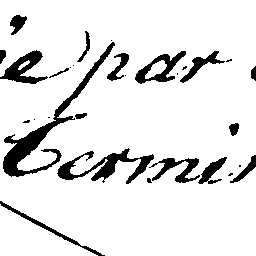 ie par
Termin